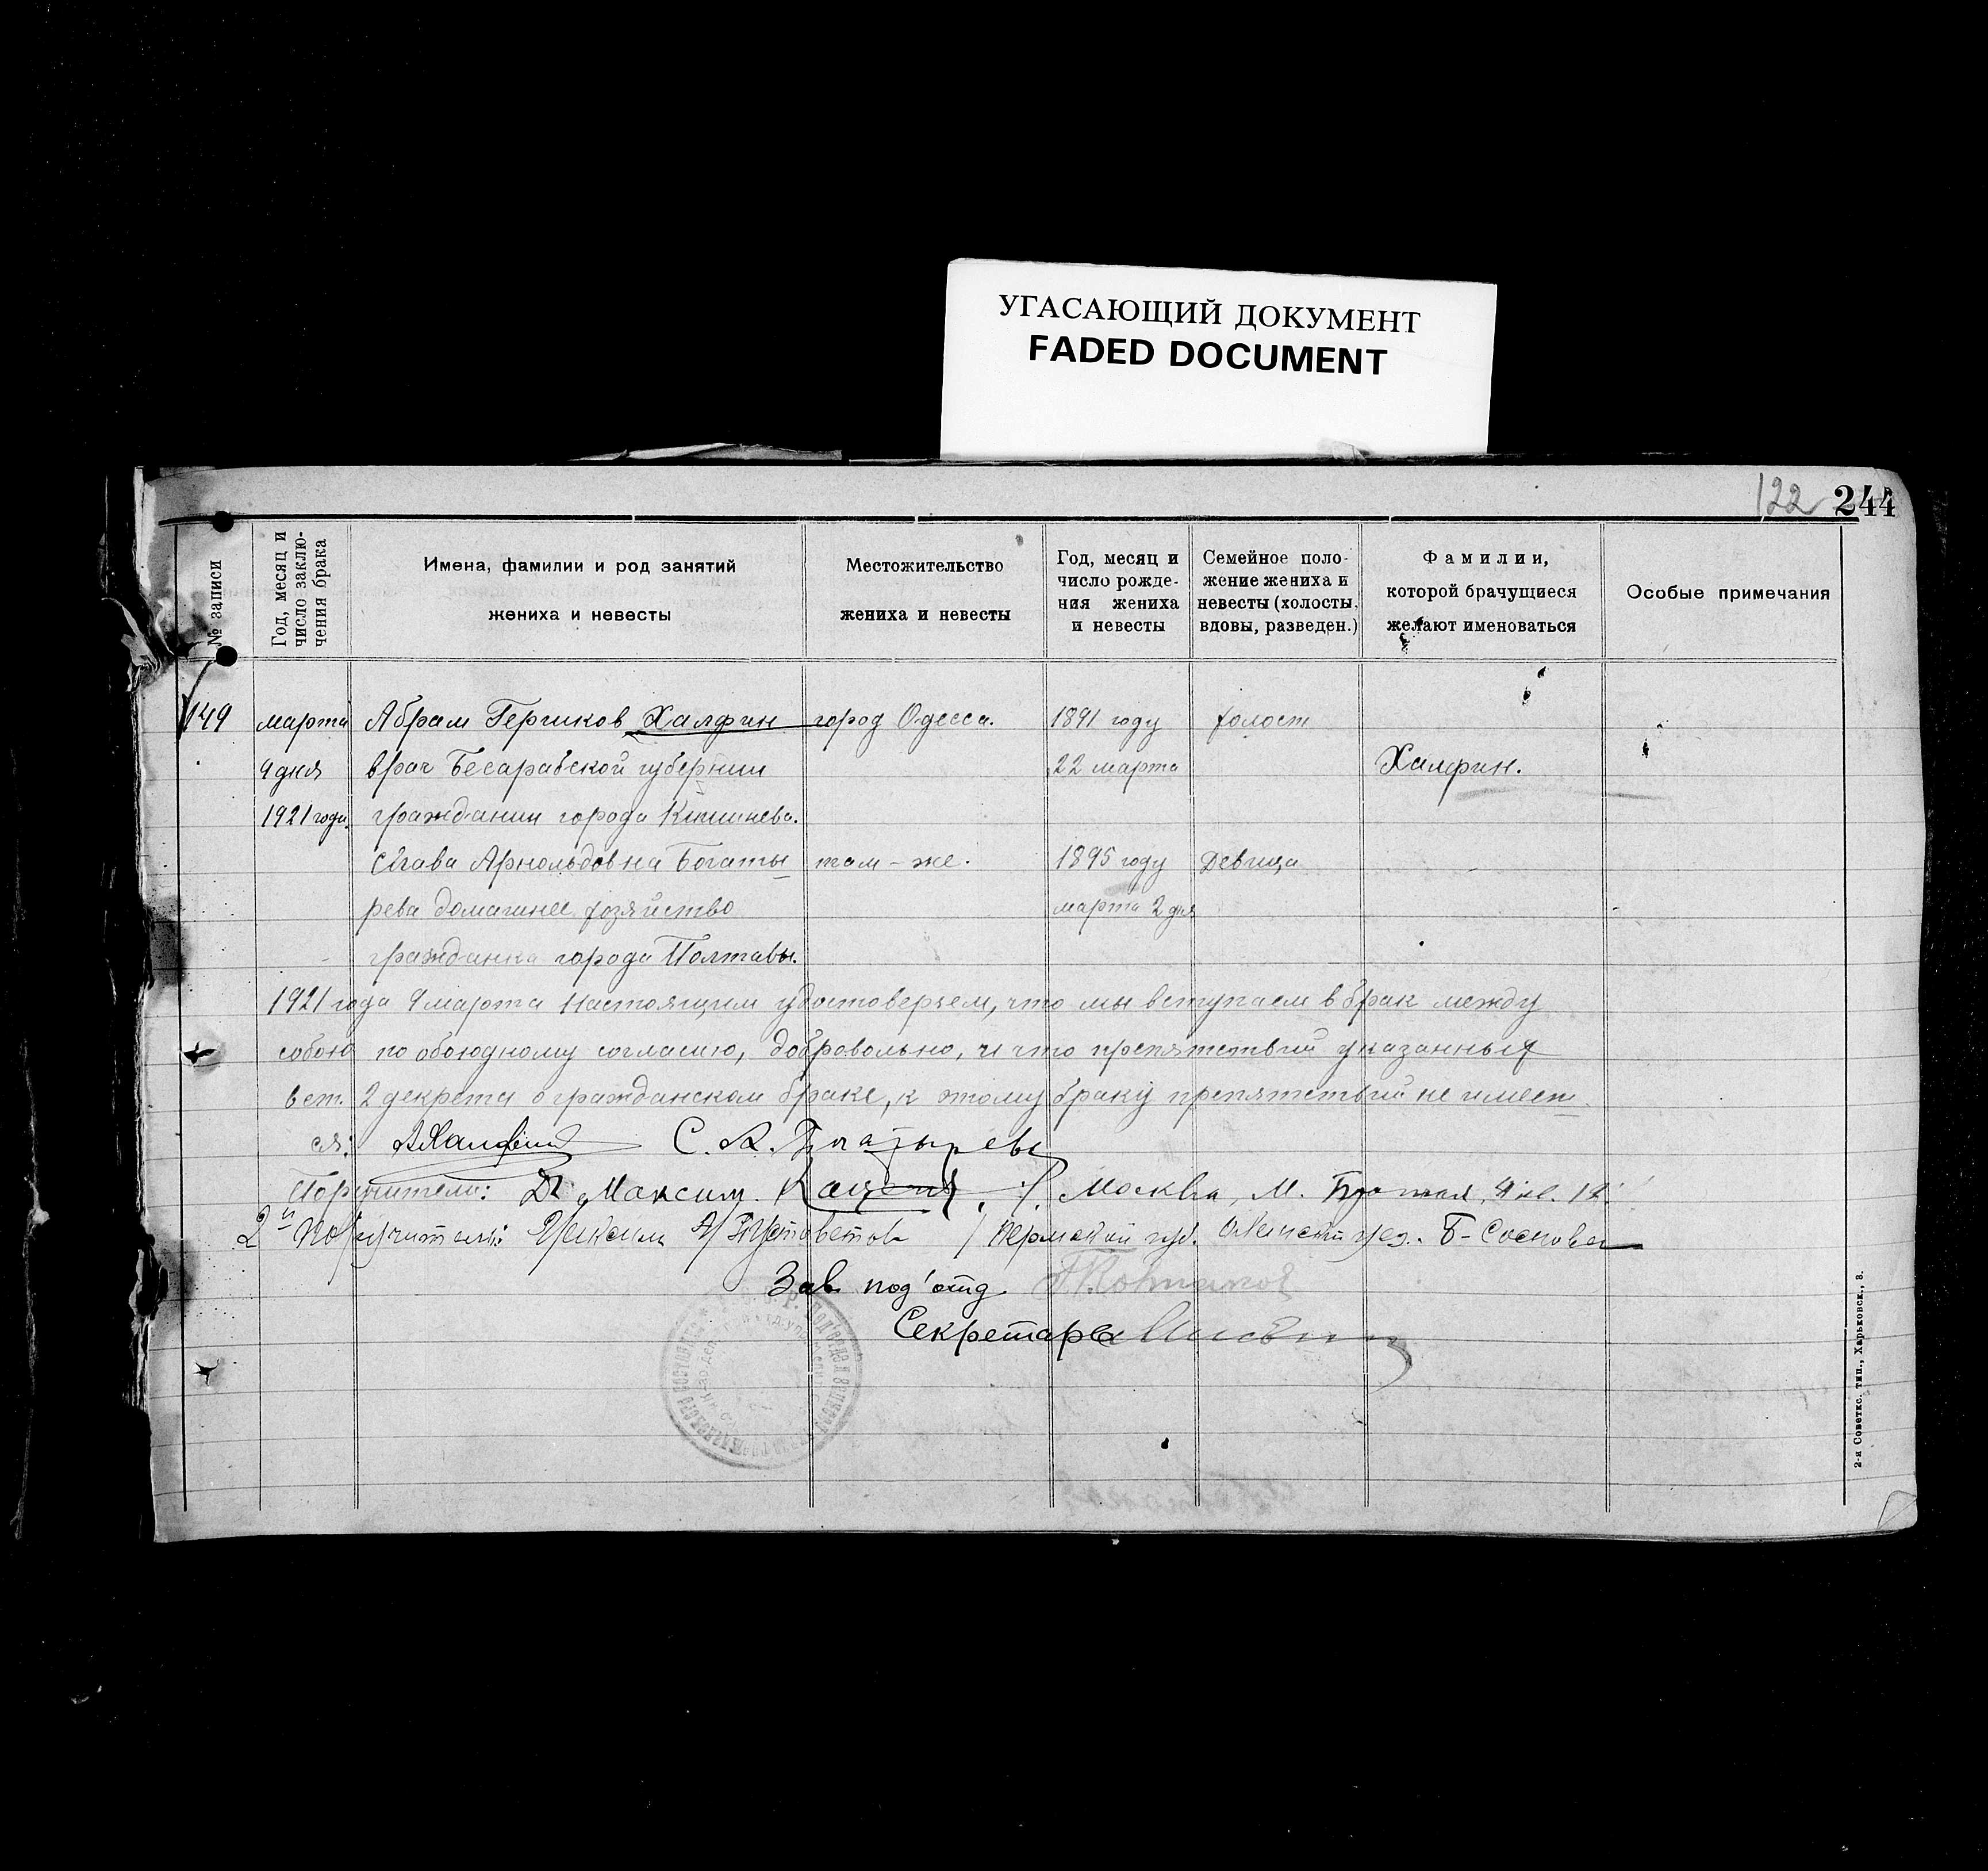 УГАСАЮЩИЙ ДОКУМЕНТ
FADED DOCUMENT
122 244
№ записи
Год, месяц и
число заклю-
чения брака
Имена, фамилии и род занятий
жениха и невесты
Местожительство
жениха и невесты
Год, месяц и
число рожде-
ния жениха
и невесты
Семейное поло-
жение жениха и
невесты (холосты,
вдовы, разведен.)
Фамилии,
которой брачущиеся
желают именоваться
Особые примечания
149 марта Абрам Гершков Халфин город Одесса. 1891 году холост
4 дня врач Бесарабской губернии 22 марта Халфин.
1921 года гражданин города Кишинева.
Арнольдовна Богаты там-же. 1895 году Девица
рева домашнее хозяйство марта 2 дня
гражданка города Полтавы.
1921 года 4 марта настоящим удостоверяем, что мы вступаем в брак между
собою по обоюдному согласию, добровольно, и что препятствий указанных
в ст. 2 декрета о гражданском браке, к этому браку препятствий не имеет
ся: АХалфин С. А. Богатырева
Поручители: Максим. Москва, М. 
2й Поручитель: Пермской губ. уез. Б-Соснова
Зав. под'отд.
Секретарь
2-я Советкс. тип., Харьковск., 3.